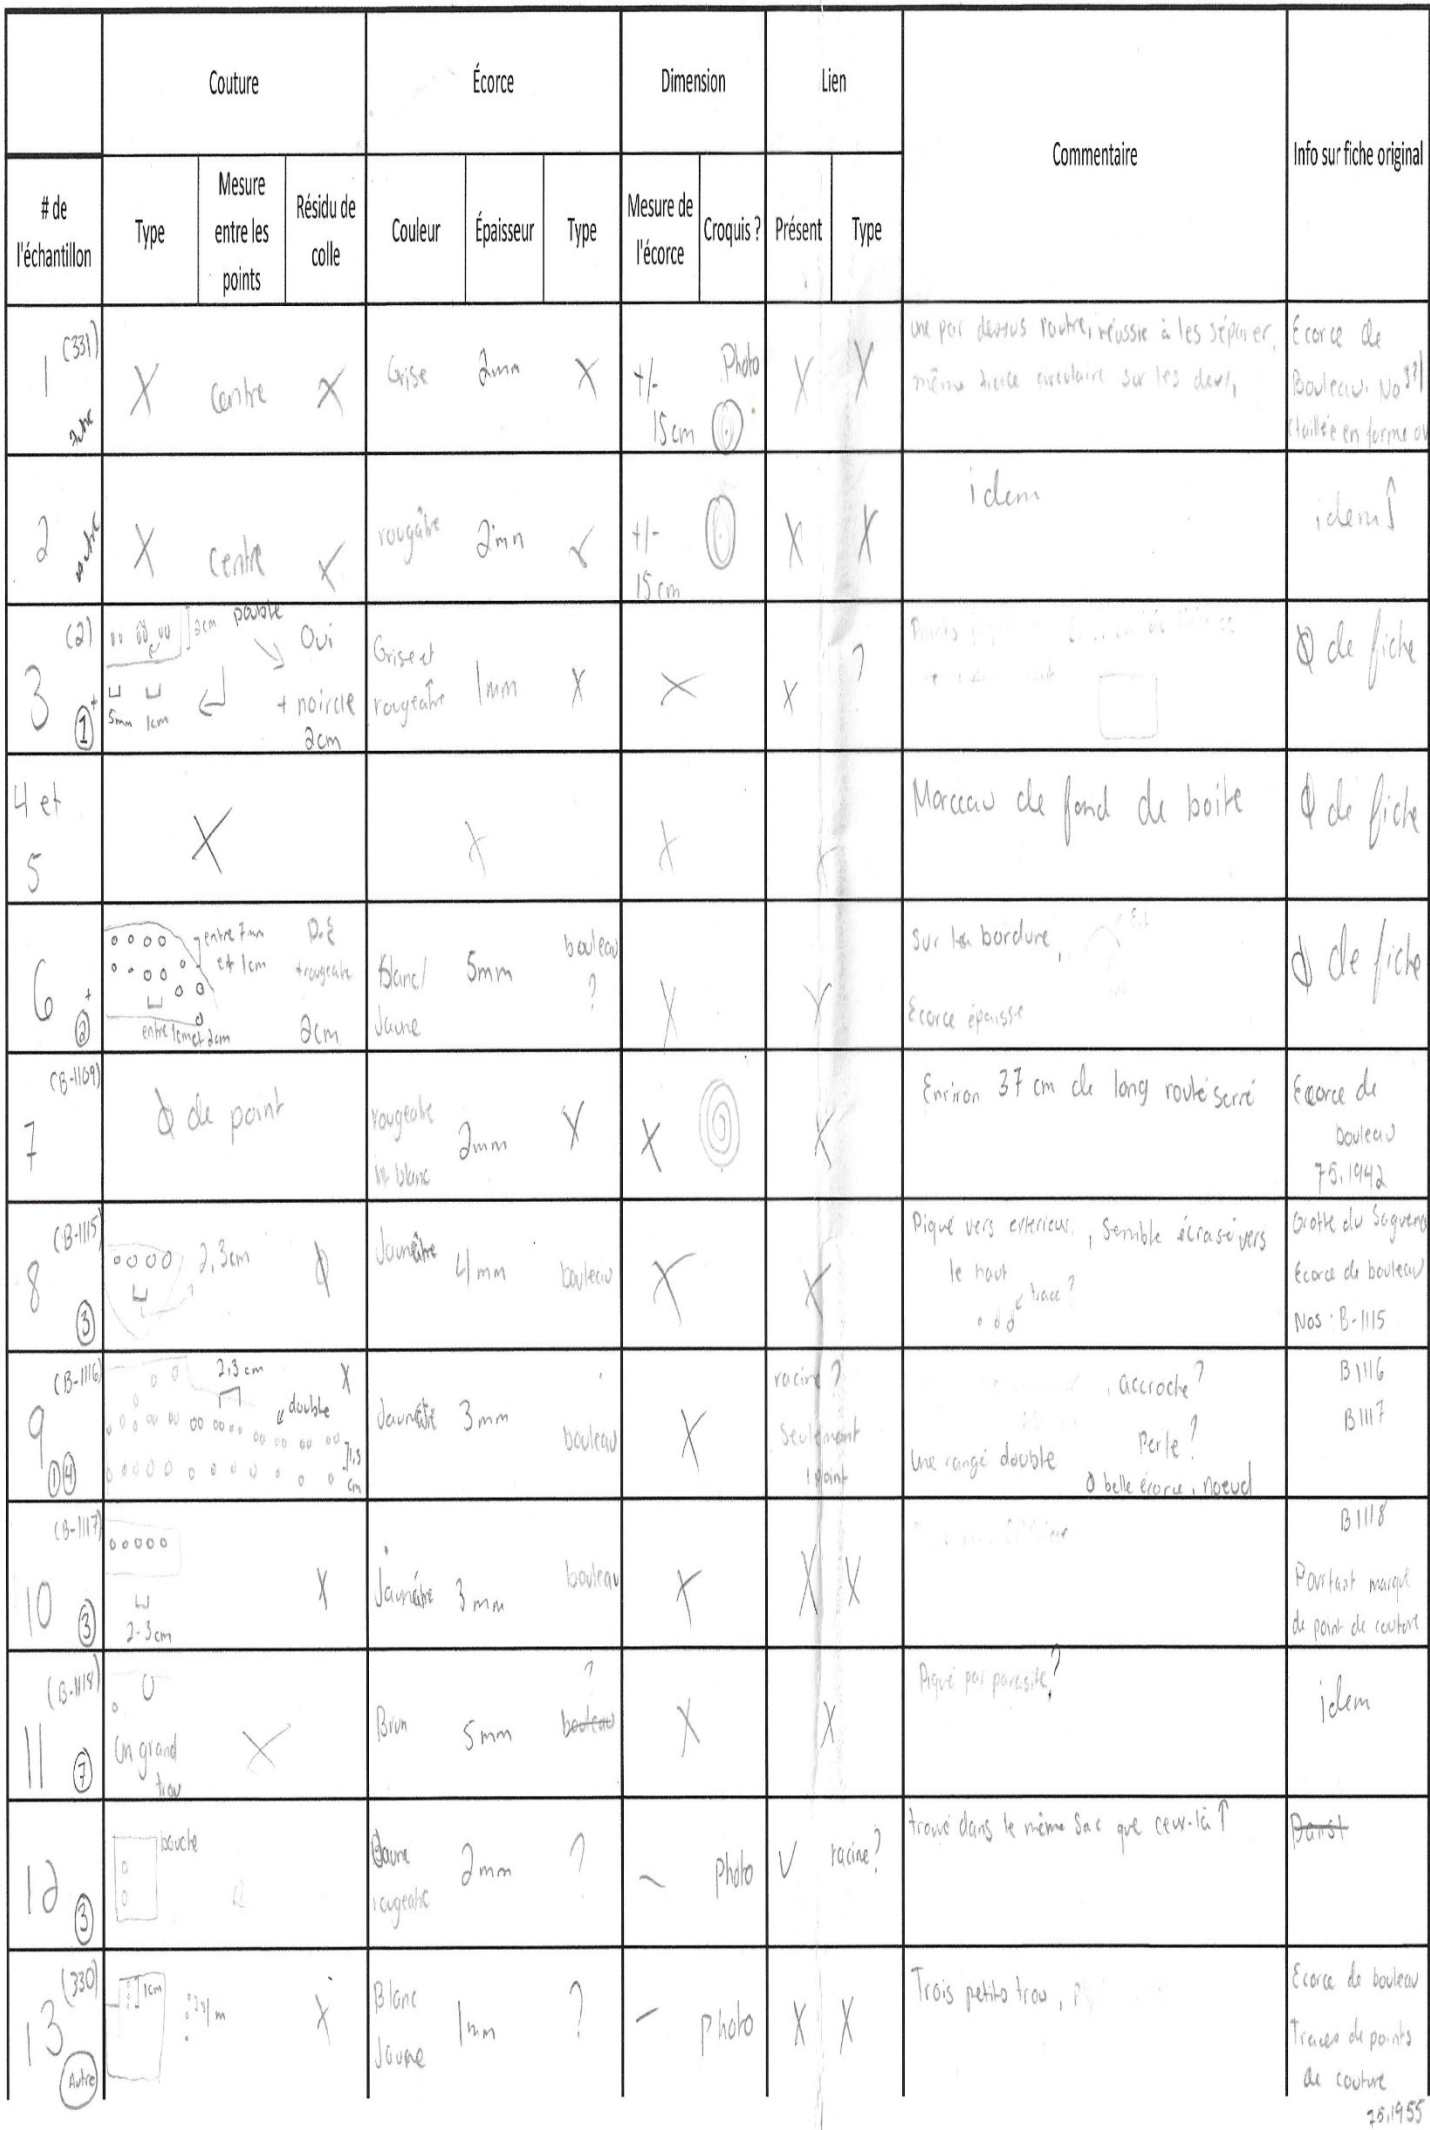 Couture Écorce Dimension Lien Commentaire Info sur fiche original
# de l'échantillon
Type
Mesure entre les points
Résidu de colle
Couleur
Épaisseur
Type
Mesure de l'écorce
Croquis ?
Présent
Type
1 (331)
Autre
X centre X
Grise 2mm X
+/- 15 cm
Photo
X X
une par dessus l'autre, réussie à les séparer,
même trace circulaire sur les deux,
Ecorce de
Bouleau. No 331
taillée en forme
2
autre
X centre X
rougâtre 2mm
+/- 15 cm
X X
idem
idem ↑
3 (2)
1 +
2cm
double
5mm 1cm
Oui
+ noircie
2cm
Grise et
rougeatre
1mm X
X
X ?
Points
∅ de fiche
4 et
5
X X X X
Morceau de fond de boite
∅ de fiche
6 +
2
entre 7mm
et 1cm
entre 1cm et 2cm
+ rougeatre
2cm
Blanc/
Jaune
5mm
bouleau
?
X X
Sur la bordure,
Ecorce épaisse
∅ de fiche
7 (B-1109)
∅ de point
rougeatre
blanc
2mm X
X
X
Environ 37 cm de long roulé serré
Ecorce de
bouleau
75.1942
8 (B-1115)
3
2,3cm
∅
Jaunâtre
4mm
bouleau
X X
Piqué vers exterieur, Semble écrasé vers
le haut
trace ?
Grotte du Saguenay
Ecorce de bouleau
Nos. B-1115
9 (B-1116)
1 4
2.3 cm
double
X
1,5
cm
Jaunâtre 3mm
bouleau
X
racine ?
Seulement
1 point
accroche ?
Perle ?
Une rangé double
∅ belle écorce, noeud
B1116
B1117
10 (B-1117)
3
2-3 cm
X
Jaunâtre 3mm
bouleau
X X X
B1118
Pourtant marqué
de point de couture
11 (B-1118)
7
Un grand
trou
X
Brun 5mm
?
bouleau
X X
Piqué par parasite ?
idem
12
3
Jaune
rougeatre
2mm ?
photo
racine ?
trouvé dans le même Sac que ceux-là ↑
13 (330)
Autre
1cm
X
Blanc
Jaune
1mm ?
photo
X X
Trois petits trou,
Ecorce de bouleau
Traces de points
de couture
75.1955